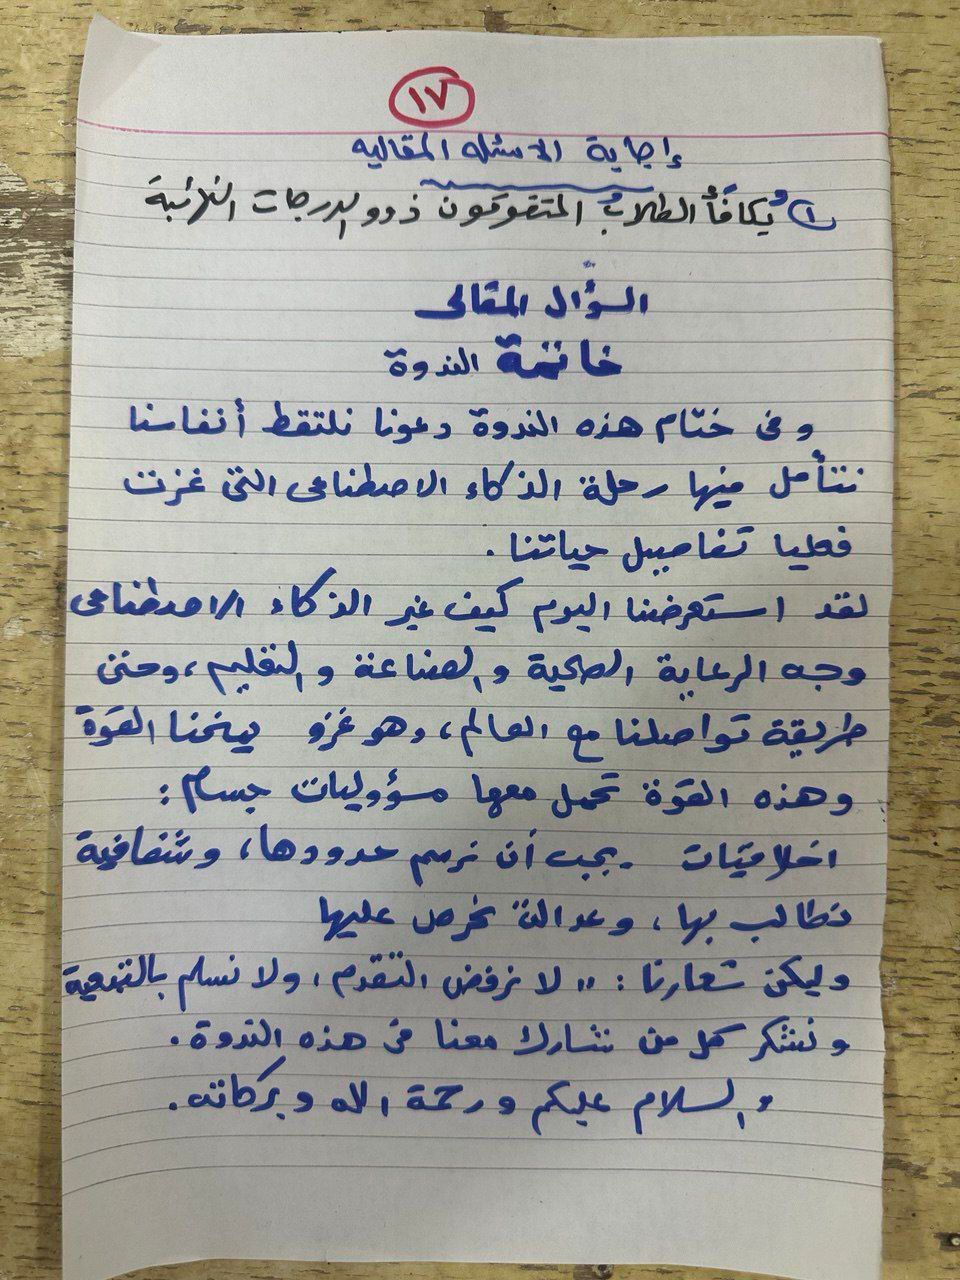 ١٧
إجابة الاسئله المقاليه
١) يُكافَأُ الطلابُ المتفوقون ذوو الدرجات النهائية
السؤال المقالى
خاتمة الندوة
وفى ختام هذه الندوة دعونا نلتقط أنفاسنا
نتأمل فيها رحلة الذكاء الاصطناعى التى غزت
فعليا تفاصيل حياتنا .
لقد استعرضنا اليوم كيف غير الذكاء الاصطناعى
وجه الرعاية الصحية والصناعة والتعليم ، وحتى
طريقة تواصلنا مع العالم ، وهو غزو يمنحنا القوة
وهذه القوة تحمل معها مسؤوليات جسام :
اخلاقيات يجب أن نرسم حدودها ، وشفافية
نطالب بها ، وعدالة نحرص عليها
وليكن شعارنا : " لا نرفض التقدم ، ولا نسلم بالتبعية
ونشكر كل من شارك معنا فى هذه الندوة .
والسلام عليكم ورحمة الله وبركاته .